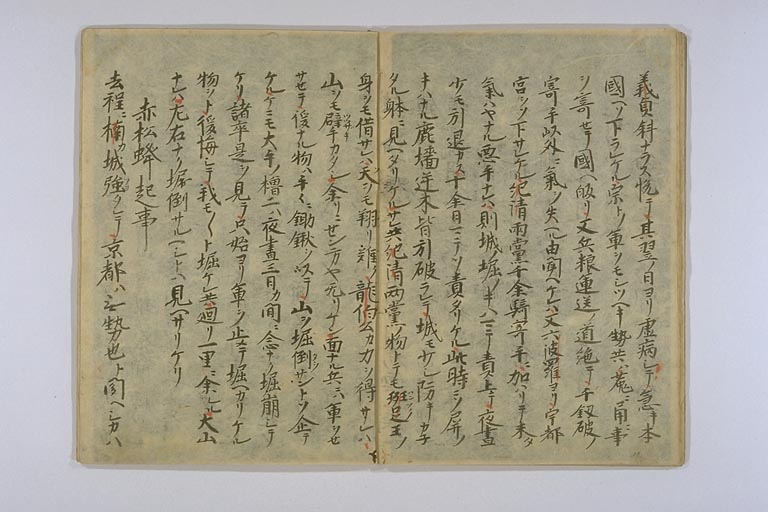 義貞斜ナラス悦テ其翌ノ日ヨリ虚病シテ急キ本
国ヘソ下ラレケル宗トノ軍ヲモシツヘキ勢共ハ兎ニ角ニ事
シ寄セテ国ヘ皈リ又兵粮運送ノ道絶テ千釼破ノ
寄手以外ニ氣ヲ失ヘル由聞ヘケレハ又六波羅ヨリ宇都
宮ヲソ下サレケル紀清両黨千余騎寄手ニ加ハリテ未タ
氣ハヤナル悪手ナレハ則城ノ堀ノキハマテ責上テ夜晝
少モ引退カス十余日マテソ責タリケル此時ニソ屏ノ
キハナル鹿墻逆木皆引破ラレテ城モサシ防キカ子
タル躰ニ見ヘタリケルサレ共紀清両黨ノ物トテモ班足王ノ
身ヲモ借サレハ天ヲモ翔リ難ク龍伯公カ力ヲ得サレハ
山ヲモ劈キカタシ余リニセン方ヤ无リケン面ナル兵ニハ軍ヲセ
サセテ後ナル物ハ手々ニ鋤鍬ヲ以テ山ヲ堀倒サントソ企テ
ケルケニモ大手ノ櫓二ハ夜晝三日カ間ニ念ナク堀崩シテ
ケリ諸卒是ヲ見テ只始ヨリ軍ヲ止テ堀ヘカリケル
物ヲト後悔シテ我モ〳〵ト堀ケレ共廻リ一里ニ余レル大山
ナレハ左右ナク堀倒サルヘシトハ見ヘサリケリ
赤松蜂起事
去程ニ楠カ城強クシテ京都ハ无勢也ト聞ヘシカハ